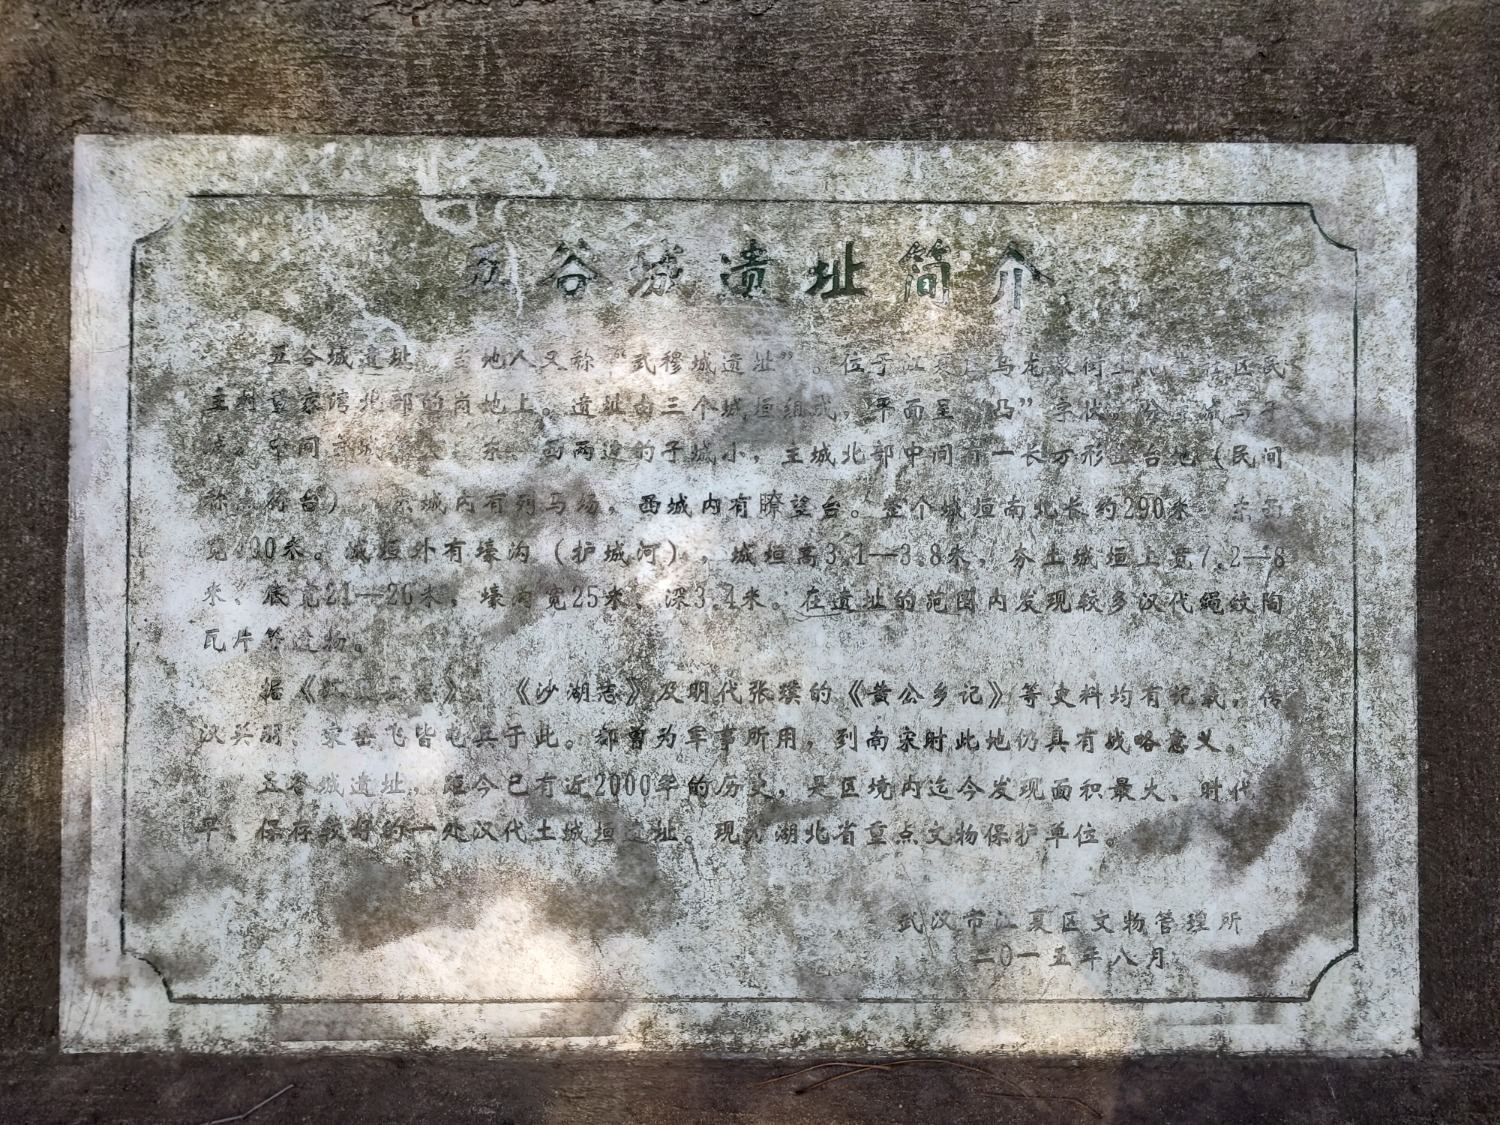 谷城遗址简介
五谷城遗址 当地人又称“武穆城遗址”。位于江夏区乌龙泉街
北部的岗地上。遗址由三个城垣组成，平面呈“凸”字状。
中间主城 东 西两边的子城小，主城北部中间有一长方形 台地（民间
称 台） 东城内有列马场，西城内有瞭望台。整个城垣南北长约290米 东西
宽 米。城垣外有壕沟（护城河），城垣高3.1—3.8米，夯土城垣上宽7.2—8
米、底宽21—26米，壕沟宽25米、深3.4米。在遗址的范围内发现较多汉代绳纹陶
瓦片等遗物。
据《 》 《沙湖志》及明代张璞的《黄公乡记》等史料均有纪载，传
汉吴 、宋岳飞皆屯兵于此。都曾为军事所用，到南宋时此地仍具有战略意义。
五谷城遗址，距今已有近2000年的历史，是区境内迄今发现面积最大、时代
早、保存较好的一处汉代土城垣遗址。现为湖北省重点文物保护单位。
武汉市江夏区文物管理所
二0一五年八月